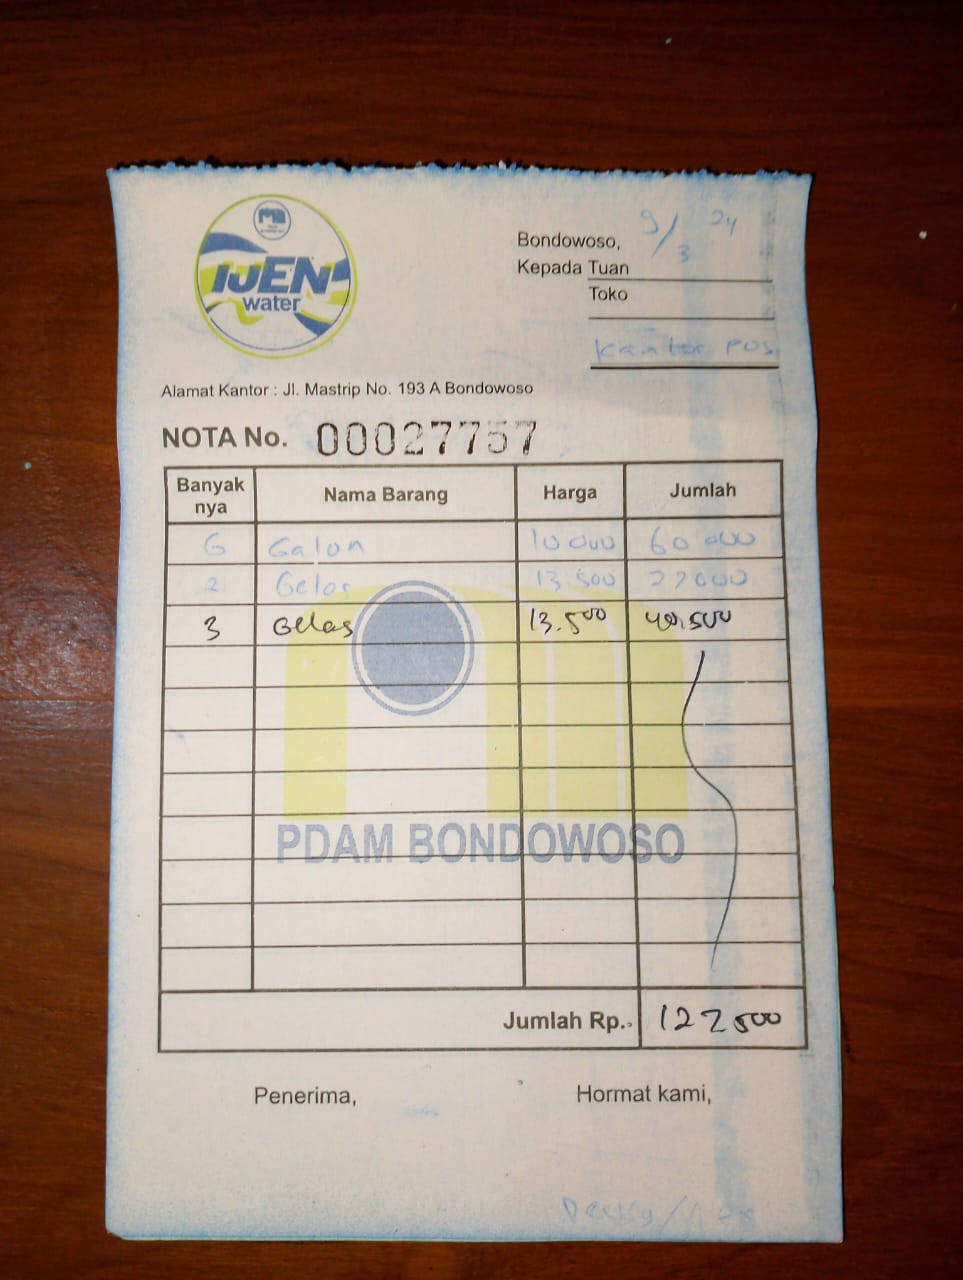 IJEN
water
Bondowoso, 9/3 24
Kepada Tuan
Toko
Kantor Pos
Alamat Kantor : Jl. Mastrip No. 193 A Bondowoso
NOTA No. 00027757
Banyak nya Nama Barang Harga Jumlah
6 Galon 10 000 60 000
2 Gelas 13.500 27000
3 Gelas 13.500 40.500
PDAM BONDOWOSO
Jumlah Rp. 127 500
Penerima, Hormat kami,